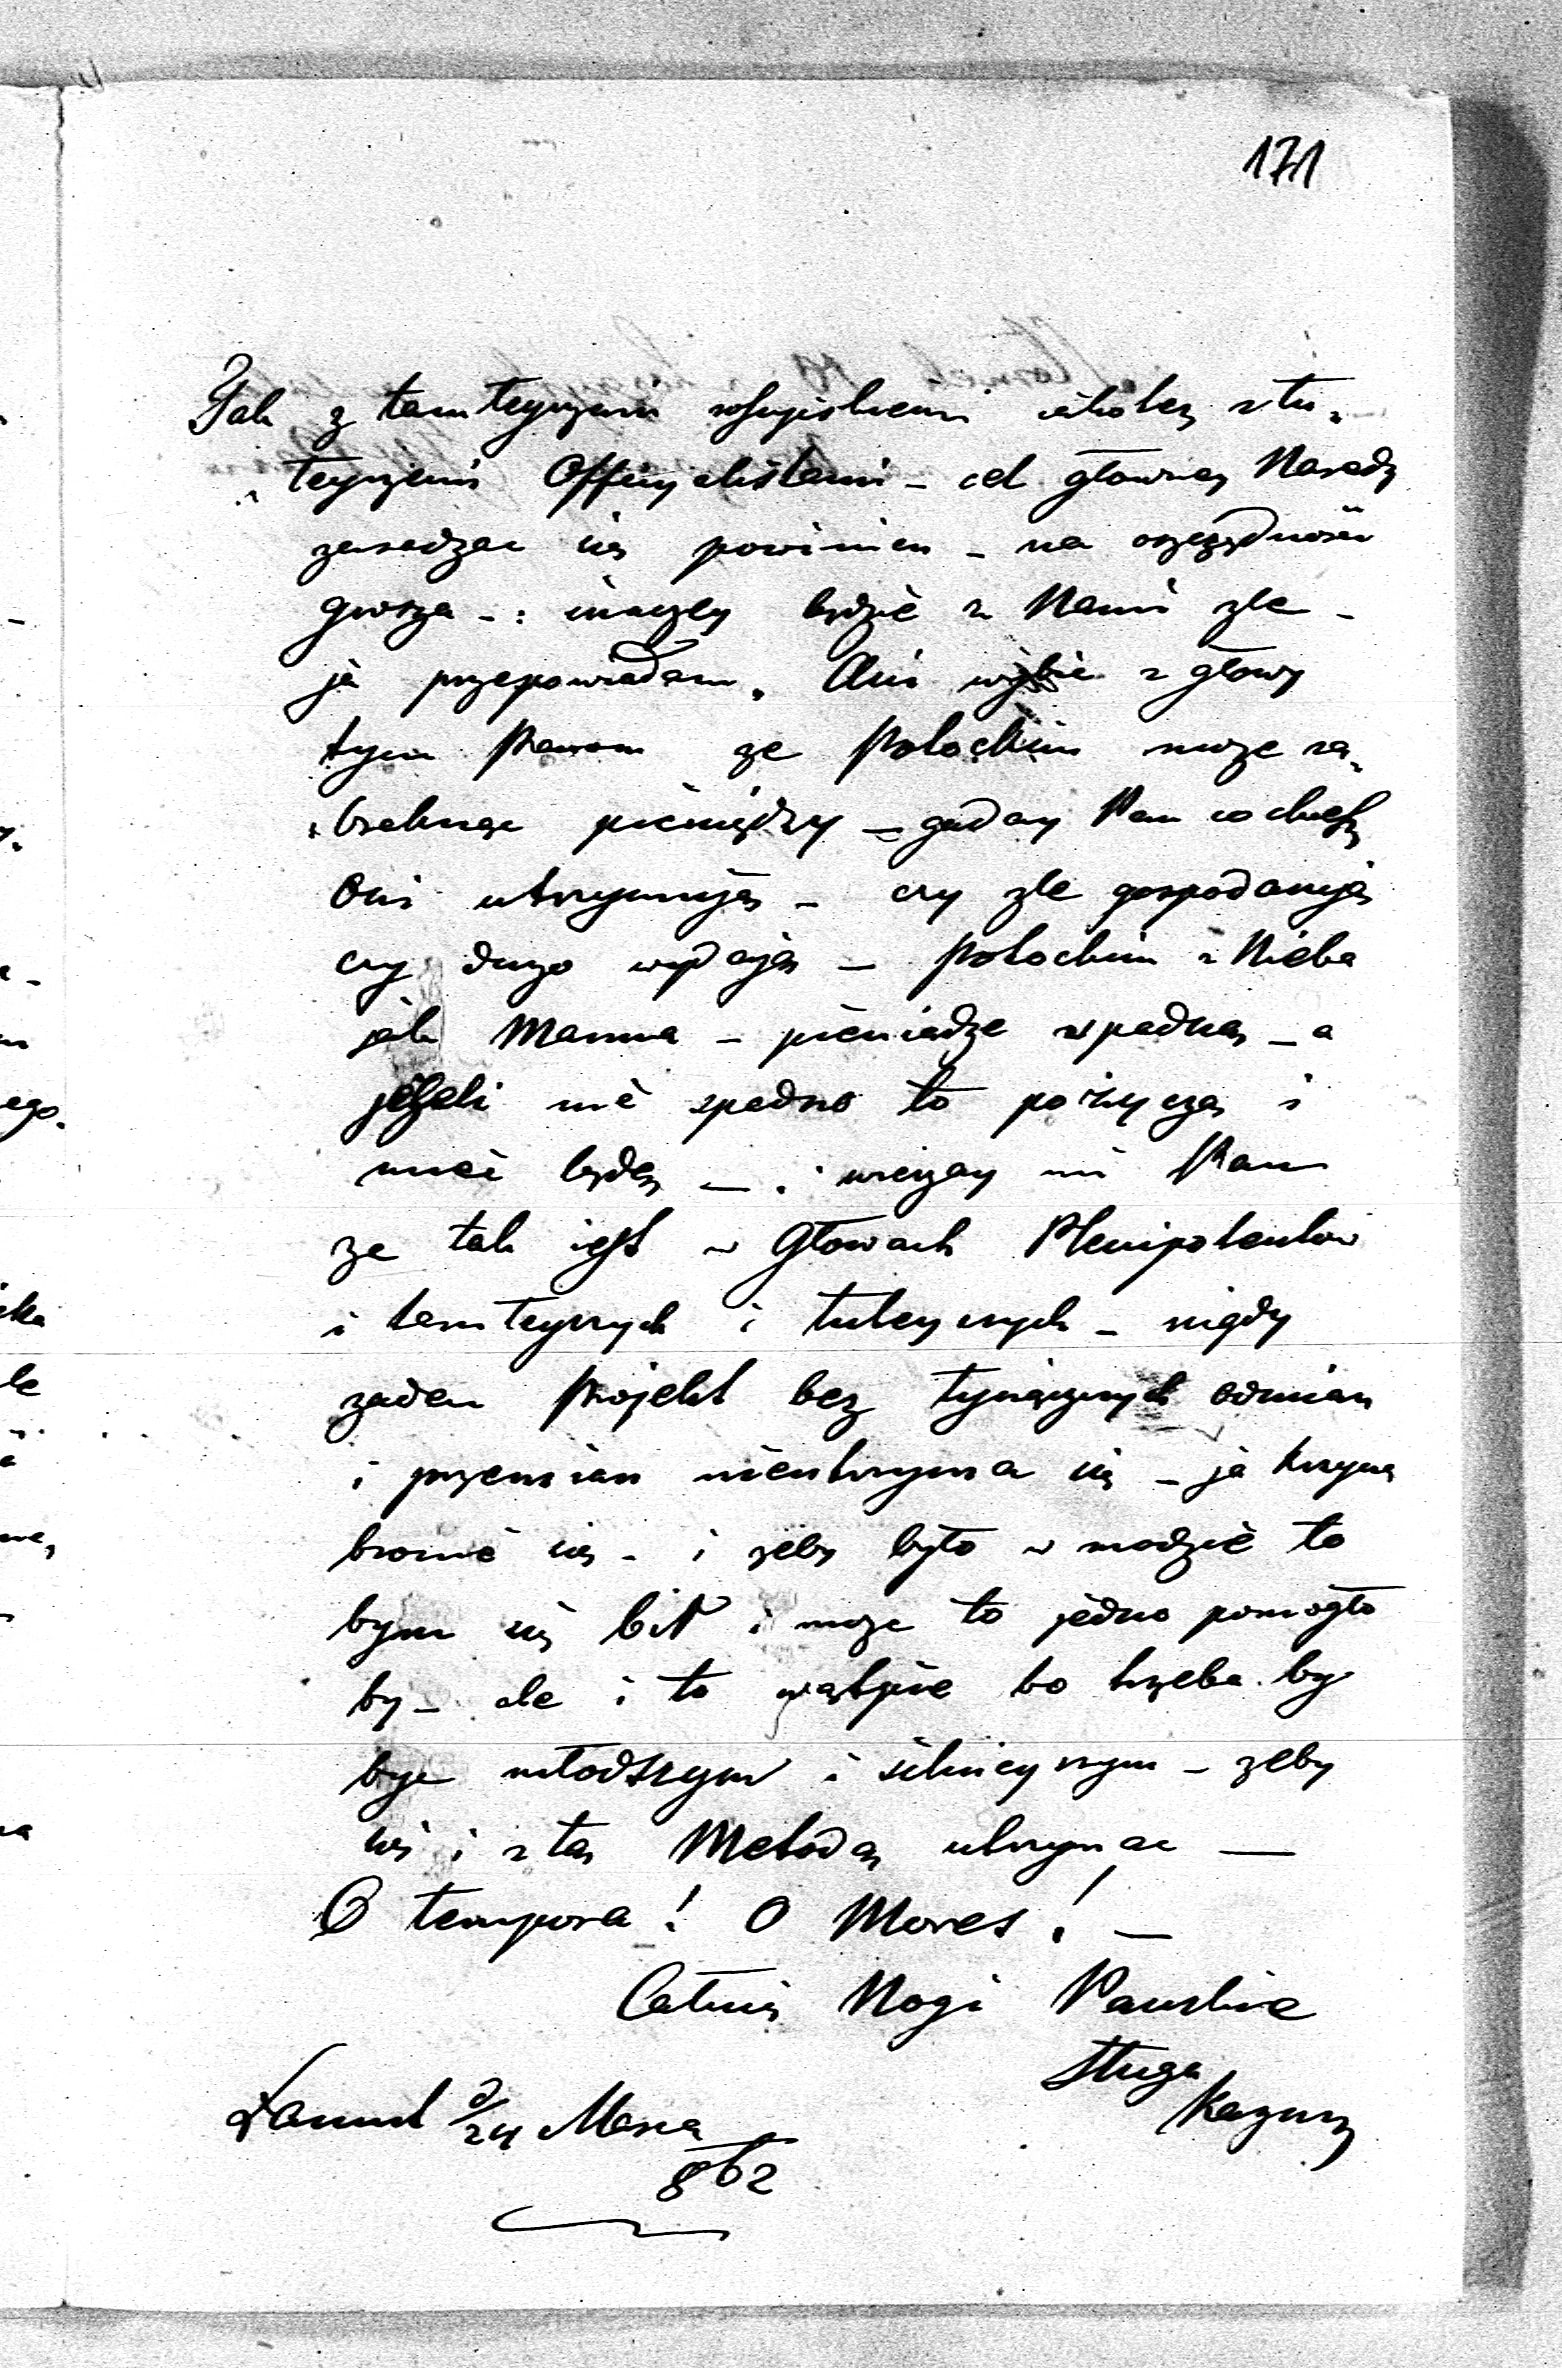 171
Jak z tamteyszemi wszystkiemi jakotez z tu„
„teyszemi Officyalistami – cel głowney Narady
zasadzac się powinien – na oszczędnosci
grosza – : inaczey będzie z Nami zle –
ja przepowiadam. Ani wybic z głowy
tym Panom ze Potockim moze za„
„braknąc pieniędzy – gaday Pan co chcesz
Oni utrzymują – czy zle gospodarują
czy duzo wydają – Potockim z Nieba
jak Manna – pieniadze wpadną – a
jezeli nie spadno to pozyczą i
miec będą – . wierzay mi Pan
ze tak jest w Głowach Plenipotentow
i tamteyszych i tuteyszych – nigdy
zaden Projekt bez tysiącznych odmian
i przemian nieutrzyma się – ja trzyma
bronie się – i zeby było w modzie to
bym się bił i moze to jedno pomogło
by – ale i to wątpie bo trzeba by
byc młodszym i silnieyszym – zeby
się i z tą Metodą utrzymac —
O tempora! O Mores! —
Całuię Nogi Pańskie
Sługa
Łancut d/24 Marca
862